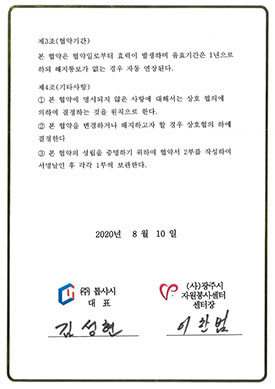 제3조(협약기간)
본 협약은 협약일로부터 효력이 발생하며 유효기간은 1년으로
하되 해지통보가 없는 경우 자동 연장된다.
제4조(기타사항)
① 본 협약에 명시되지 않은 사항에 대해서는 상호 협의에
의하여 결정하는 것을 원칙으로 한다.
② 본 협약을 변경하거나 해지하고자 할 경우 상호협의 하에
결정한다
③ 본 협약의 성립을 증명하기 위하여 협약서 2부를 작성하여
서명날인 후 각각 1부씩 보관한다.
2020년 8월 10일
(주) 톱샤시
대 표
김성현
(사)광주시
자원봉사센터
센터장
이찬범